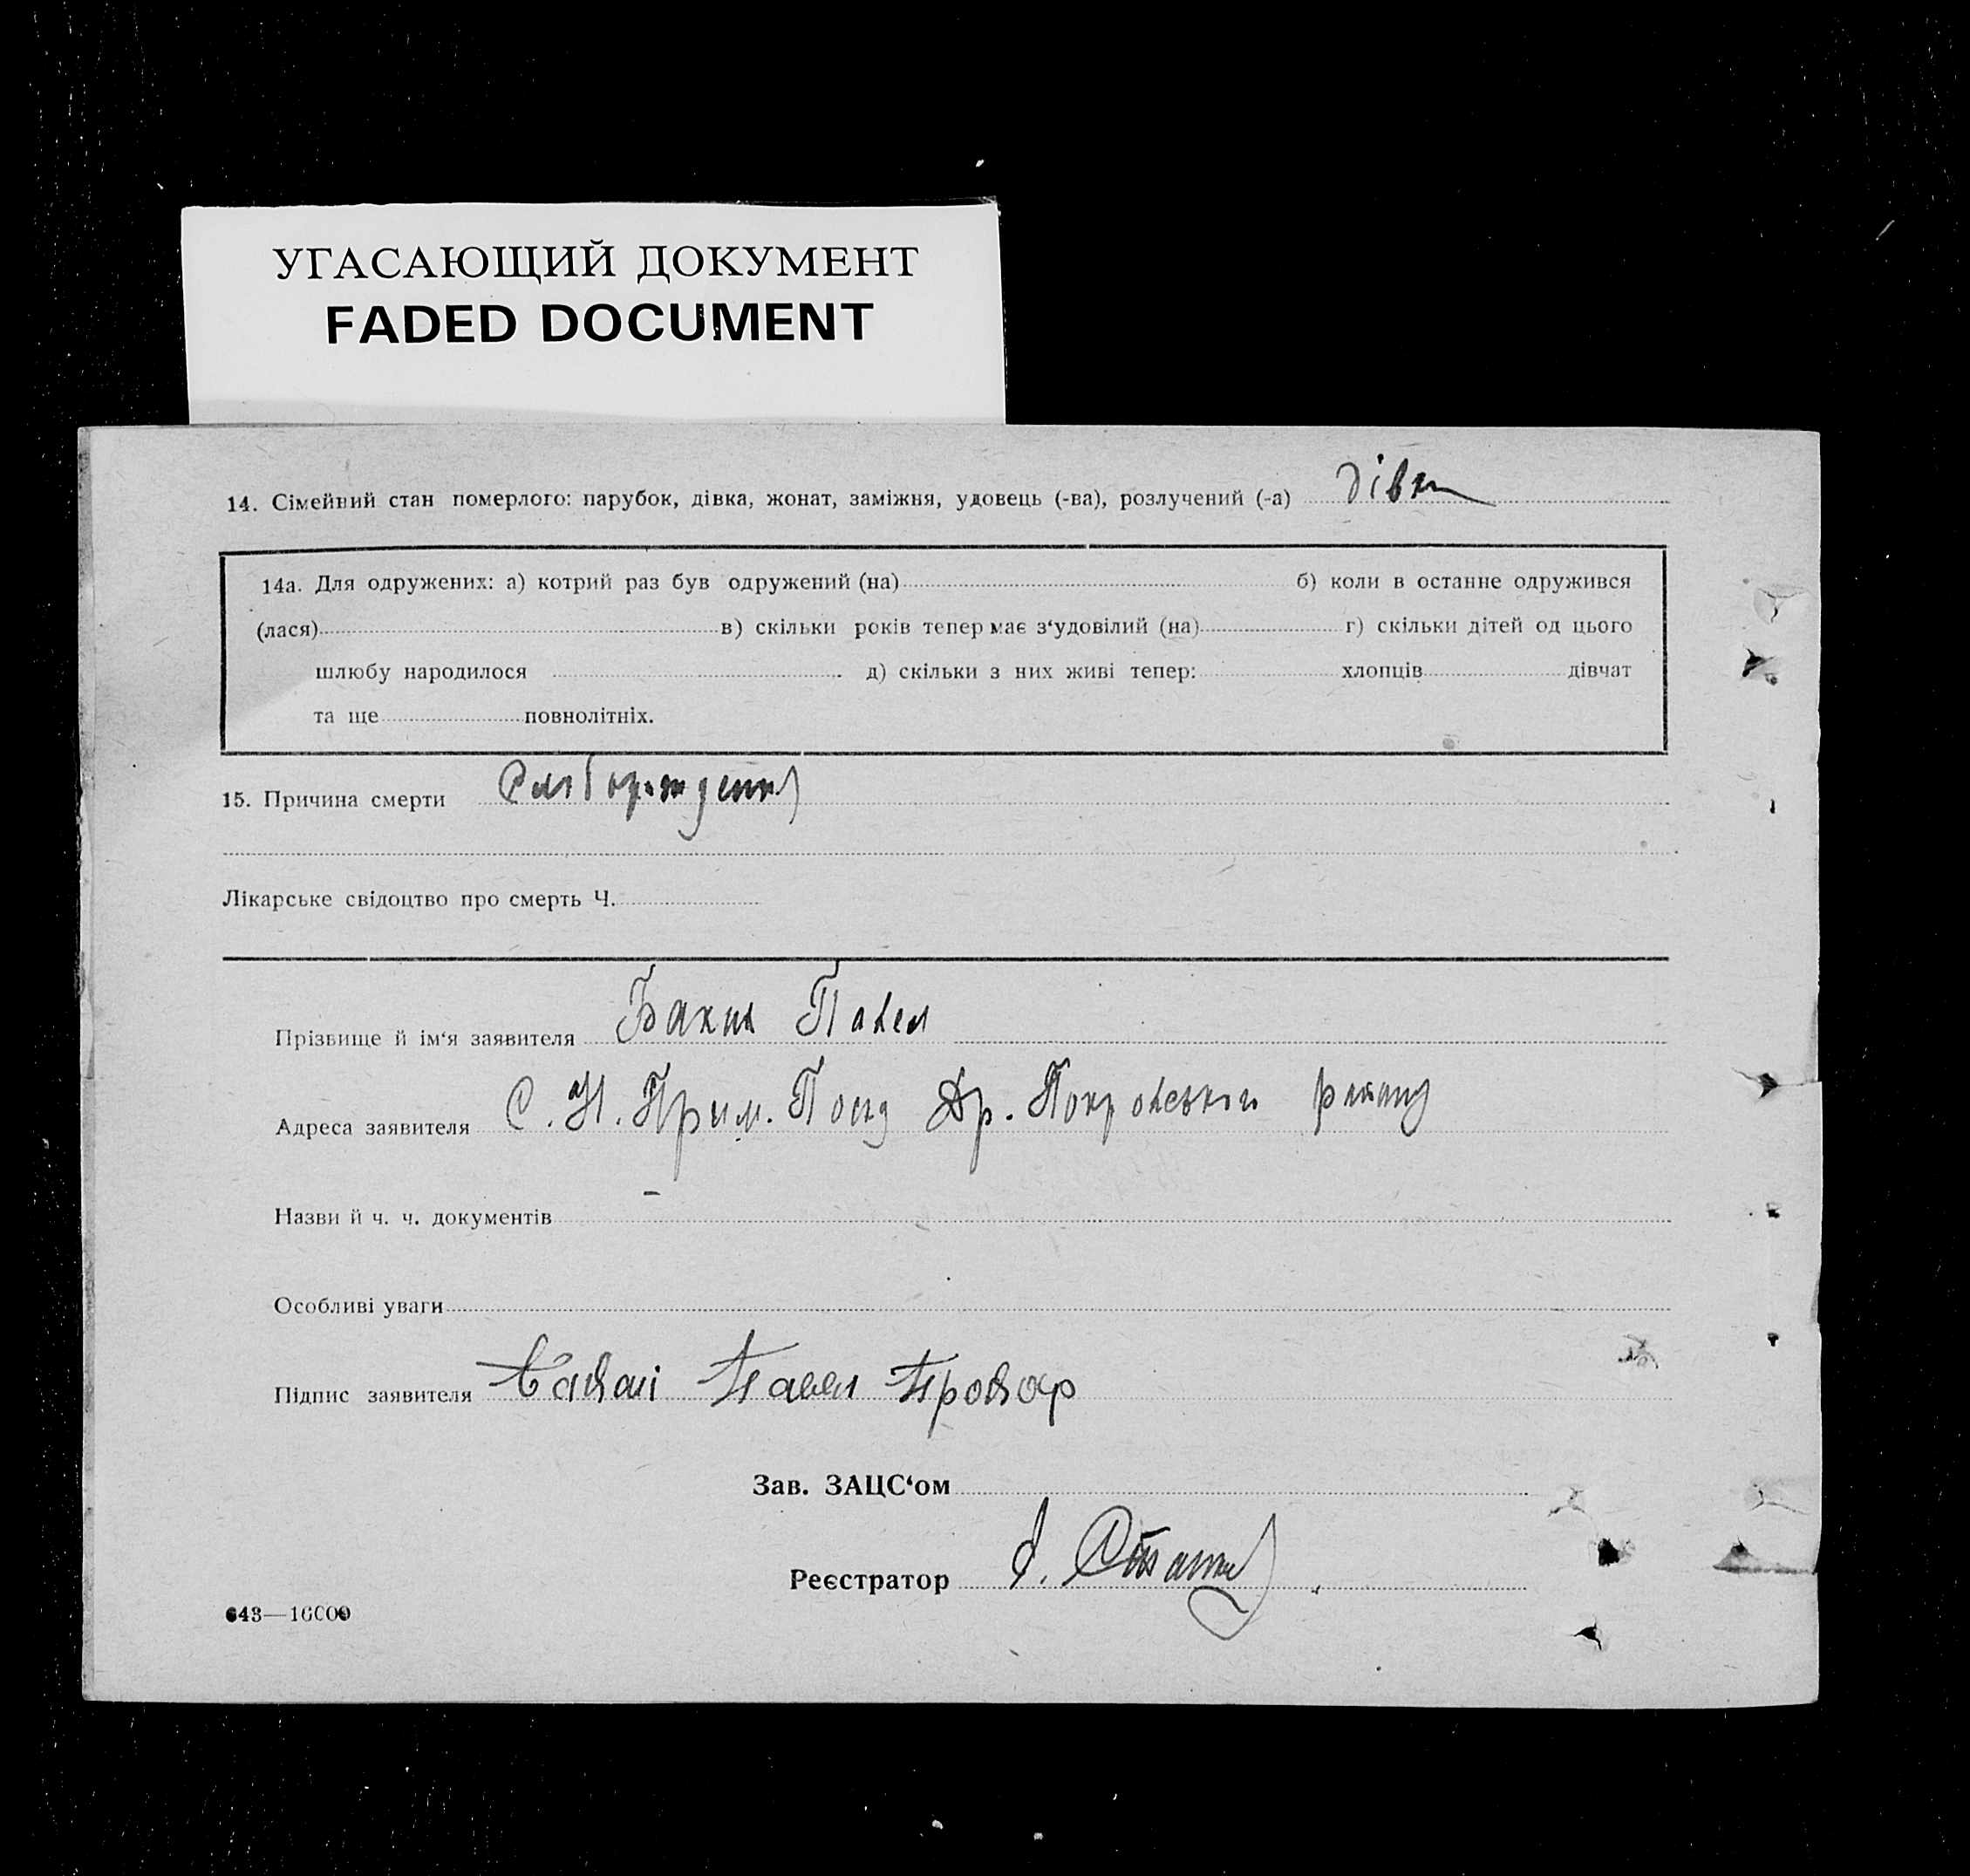 УГАСАЮЩИЙ ДОКУМЕНТ
FADED DOCUMENT
14. Сімейний стан померлого: парубок, дівка, жонат, заміжня, удовець (-ва), розлучений (-а) дівка
14а. Для одружених: а) котрий раз був одружений (на) б) коли в останне одружився
(лася) в) скільки років тепер має з‘удовілий (на) г) скільки дітей од цього
шлюбу народилося д) скільки з них живі тепер: хлопців дівчат
та ще повнолітніх.
15. Причина смерти
Лікарське свідоцтво про смерть Ч.
Прізвище й ім‘я заявителя Павел
Адреса заявителя С. Н. Прим. Посад Др. Покровського району
Назви й ч. ч. документів –
Особливі уваги
Підпис заявителя Павел
Зав. ЗАЦС‘ом
Реєстратор
643—10000